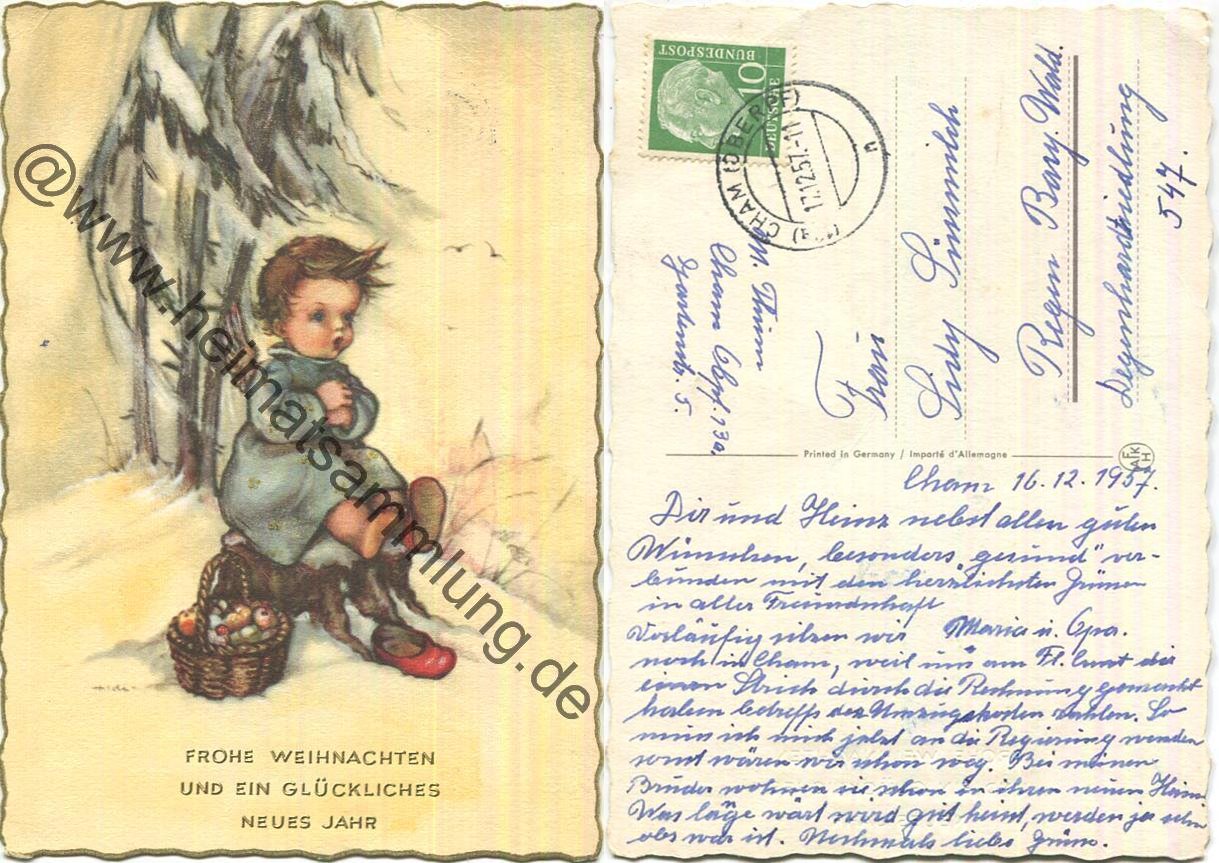 FROHE WEIHNACHTEN
UND EIN GLÜCKLICHES
NEUES JAHR
@www.heimatsammlung.de
DEUTSCHE
BUNDESPOST
10
CHAM (OBERPF)
17.12.57-11
M.
Cham Obpf. 13a.
Gartenstr. 5.
Frau
Regen Bayr. Wald.
Degenhardsiedlung
547.
Printed in Germany / Importé d'Allemagne
Cham 16.12.1957.
Dir und Heinz nebst allen guten
Wünschen, besonders „gesund" ver-
bunden mit den herzlichsten Grüssen
in alter Freundschaft
Maria u. Opa.
Vorläufig sitzen wir
noch in Cham, weil uns am Fl. die
einen Strich durch die Rechnung gemacht
haben betreffs der Umzugskosten zahlen. So
muss ich mich jetzt an die Regierung wenden
sonst wären wir schon weg. Bei meinen
Bruder wohnen sie schon in ihren neuen Heim
Was wird gut heist, werden ja sehn
obs war ist. Nochmals liebe Grüsse.